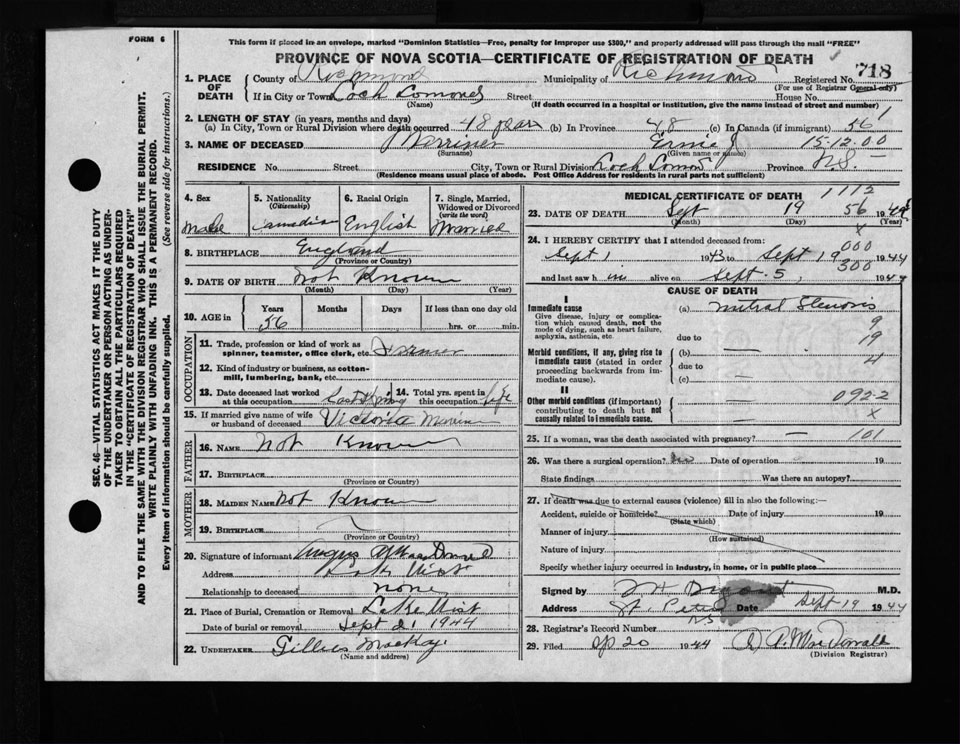 FORM 6
This form if placed in an envelope, marked "Dominion Statistics—Free, penalty for improper use $300," and properly addressed will pass through the mail "FREE"
PROVINCE OF NOVA SCOTIA—CERTIFICATE OF REGISTRATION OF DEATH
1. PLACE OF DEATH County of Richmond Municipality of Richmond Registered No. 718
(For use of Registrar General only)
If in City or Town Loch Lomond Street House No.
(Name) (If death occurred in a hospital or institution, give the name instead of street and number)
2. LENGTH OF STAY (in years, months and days)
(a) In City, Town or Rural Division where death occurred 48 years (b) In Province 48 (c) In Canada (if immigrant) 56
3. NAME OF DECEASED Ernie J 15-12.00
(Surname) (Given name or names)
RESIDENCE No. Street City, Town or Rural Division Loch Lomond Province N.S.
(Residence means usual place of abode. Post Office Address for residents in rural parts not sufficient)
4. Sex Male
5. Nationality (Citizenship) Canadian
6. Racial Origin English
7. Single, Married, Widowed or Divorced (write the word) Married
8. BIRTHPLACE England
(Province or Country)
9. DATE OF BIRTH Not Known
(Month) (Day) (Year)
10. AGE in Years Months Days If less than one day old
56 hrs. or min.
OCCUPATION
11. Trade, profession or kind of work as spinner, teamster, office clerk, etc. Farmer
12. Kind of industry or business, as cotton-mill, lumbering, bank, etc.
13. Date deceased last worked at this occupation Last Spring 14. Total yrs. spent in this occupation Life
15. If married give name of wife or husband of deceased Victoria
FATHER
16. NAME Not Known
17. BIRTHPLACE
(Province or Country)
MOTHER
18. MAIDEN NAME Not Known
19. BIRTHPLACE
(Province or Country)
20. Signature of informant Angus MacDonald
Address Uist
Relationship to deceased none
21. Place of Burial, Cremation or Removal Lake Uist
Date of burial or removal Sept 21 1944
22. UNDERTAKER Gillies Mackay
(Name and address)
MEDICAL CERTIFICATE OF DEATH 1112
23. DATE OF DEATH Sept 19 56 1944
(Month) (Day) (Year)
x
24. I HEREBY CERTIFY that I attended deceased from: 000
Sept 1 1943 to Sept 19 1944
300
and last saw him alive on Sept. 5, 1944
CAUSE OF DEATH
I
Immediate cause (a) Mitral Stenosis
Give disease, injury or complication which caused death, not the mode of dying, such as heart failure, asphyxia, asthenia, etc.
9
due to 19
Morbid conditions, if any, giving rise to immediate cause (stated in order proceeding backwards from immediate cause).
(b) — 4
due to
(c) —
II
Other morbid conditions (if important) contributing to death but not causally related to immediate cause.
092.2
x
25. If a woman, was the death associated with pregnancy? — 101
26. Was there a surgical operation? No Date of operation 19
State findings Was there an autopsy?
27. If death was due to external causes (violence) fill in also the following:—
Accident, suicide or homicide? Date of injury 19
(State which)
Manner of injury
(How sustained)
Nature of injury
Specify whether injury occurred in industry, in home, or in public place
Signed by M.D.
Address St. Peters NS Date Sept 19 1944
28. Registrar's Record Number
29. Filed Sp 20 1944 MacDonald
(Division Registrar)
SEC. 46—VITAL STATISTICS ACT MAKES IT THE DUTY
OF THE UNDERTAKER OR PERSON ACTING AS UNDER-
TAKER TO OBTAIN ALL THE PARTICULARS REQUIRED
IN THE "CERTIFICATE OF REGISTRATION OF DEATH"
AND TO FILE THE SAME WITH THE DIVISION REGISTRAR WHO SHALL ISSUE THE BURIAL PERMIT.
WRITE PLAINLY WITH UNFADING INK. THIS IS A PERMANENT RECORD.
Every item of information should be carefully supplied. (See reverse side for instructions.)